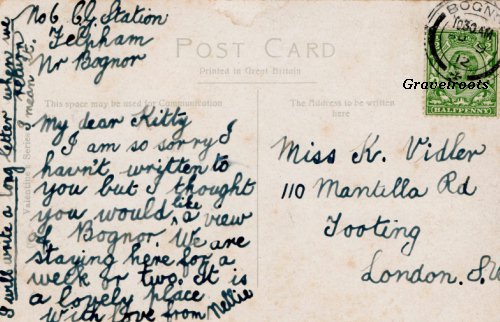 No 6 C.G. Station
Felpham
Nr Bognor
My dear Kitty
I am so sorry I
havn't written to
you but I thought
you would like a view
of Bognor. We are
staying here for a
week or two. It is
a lovely place
With love from Nellie
I will write a long letter when we
return
I mean it.
POST CARD
Printed in Great Britain
This space may be used for Communication
The Address to be written
here
Valentine's Series
Miss K. Vidler
110 Mantilla Rd
Tooting
London. S.W
BOGNOR
10 30 AM
12
HALFPENNY
Gravelroots